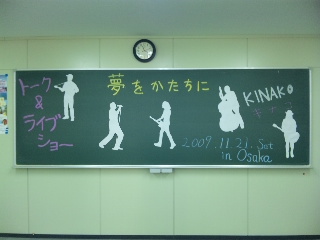 トーク
&
ライブ
ショー
夢をかたちに
KINAKO
2009.11.21.Sat
in Osaka